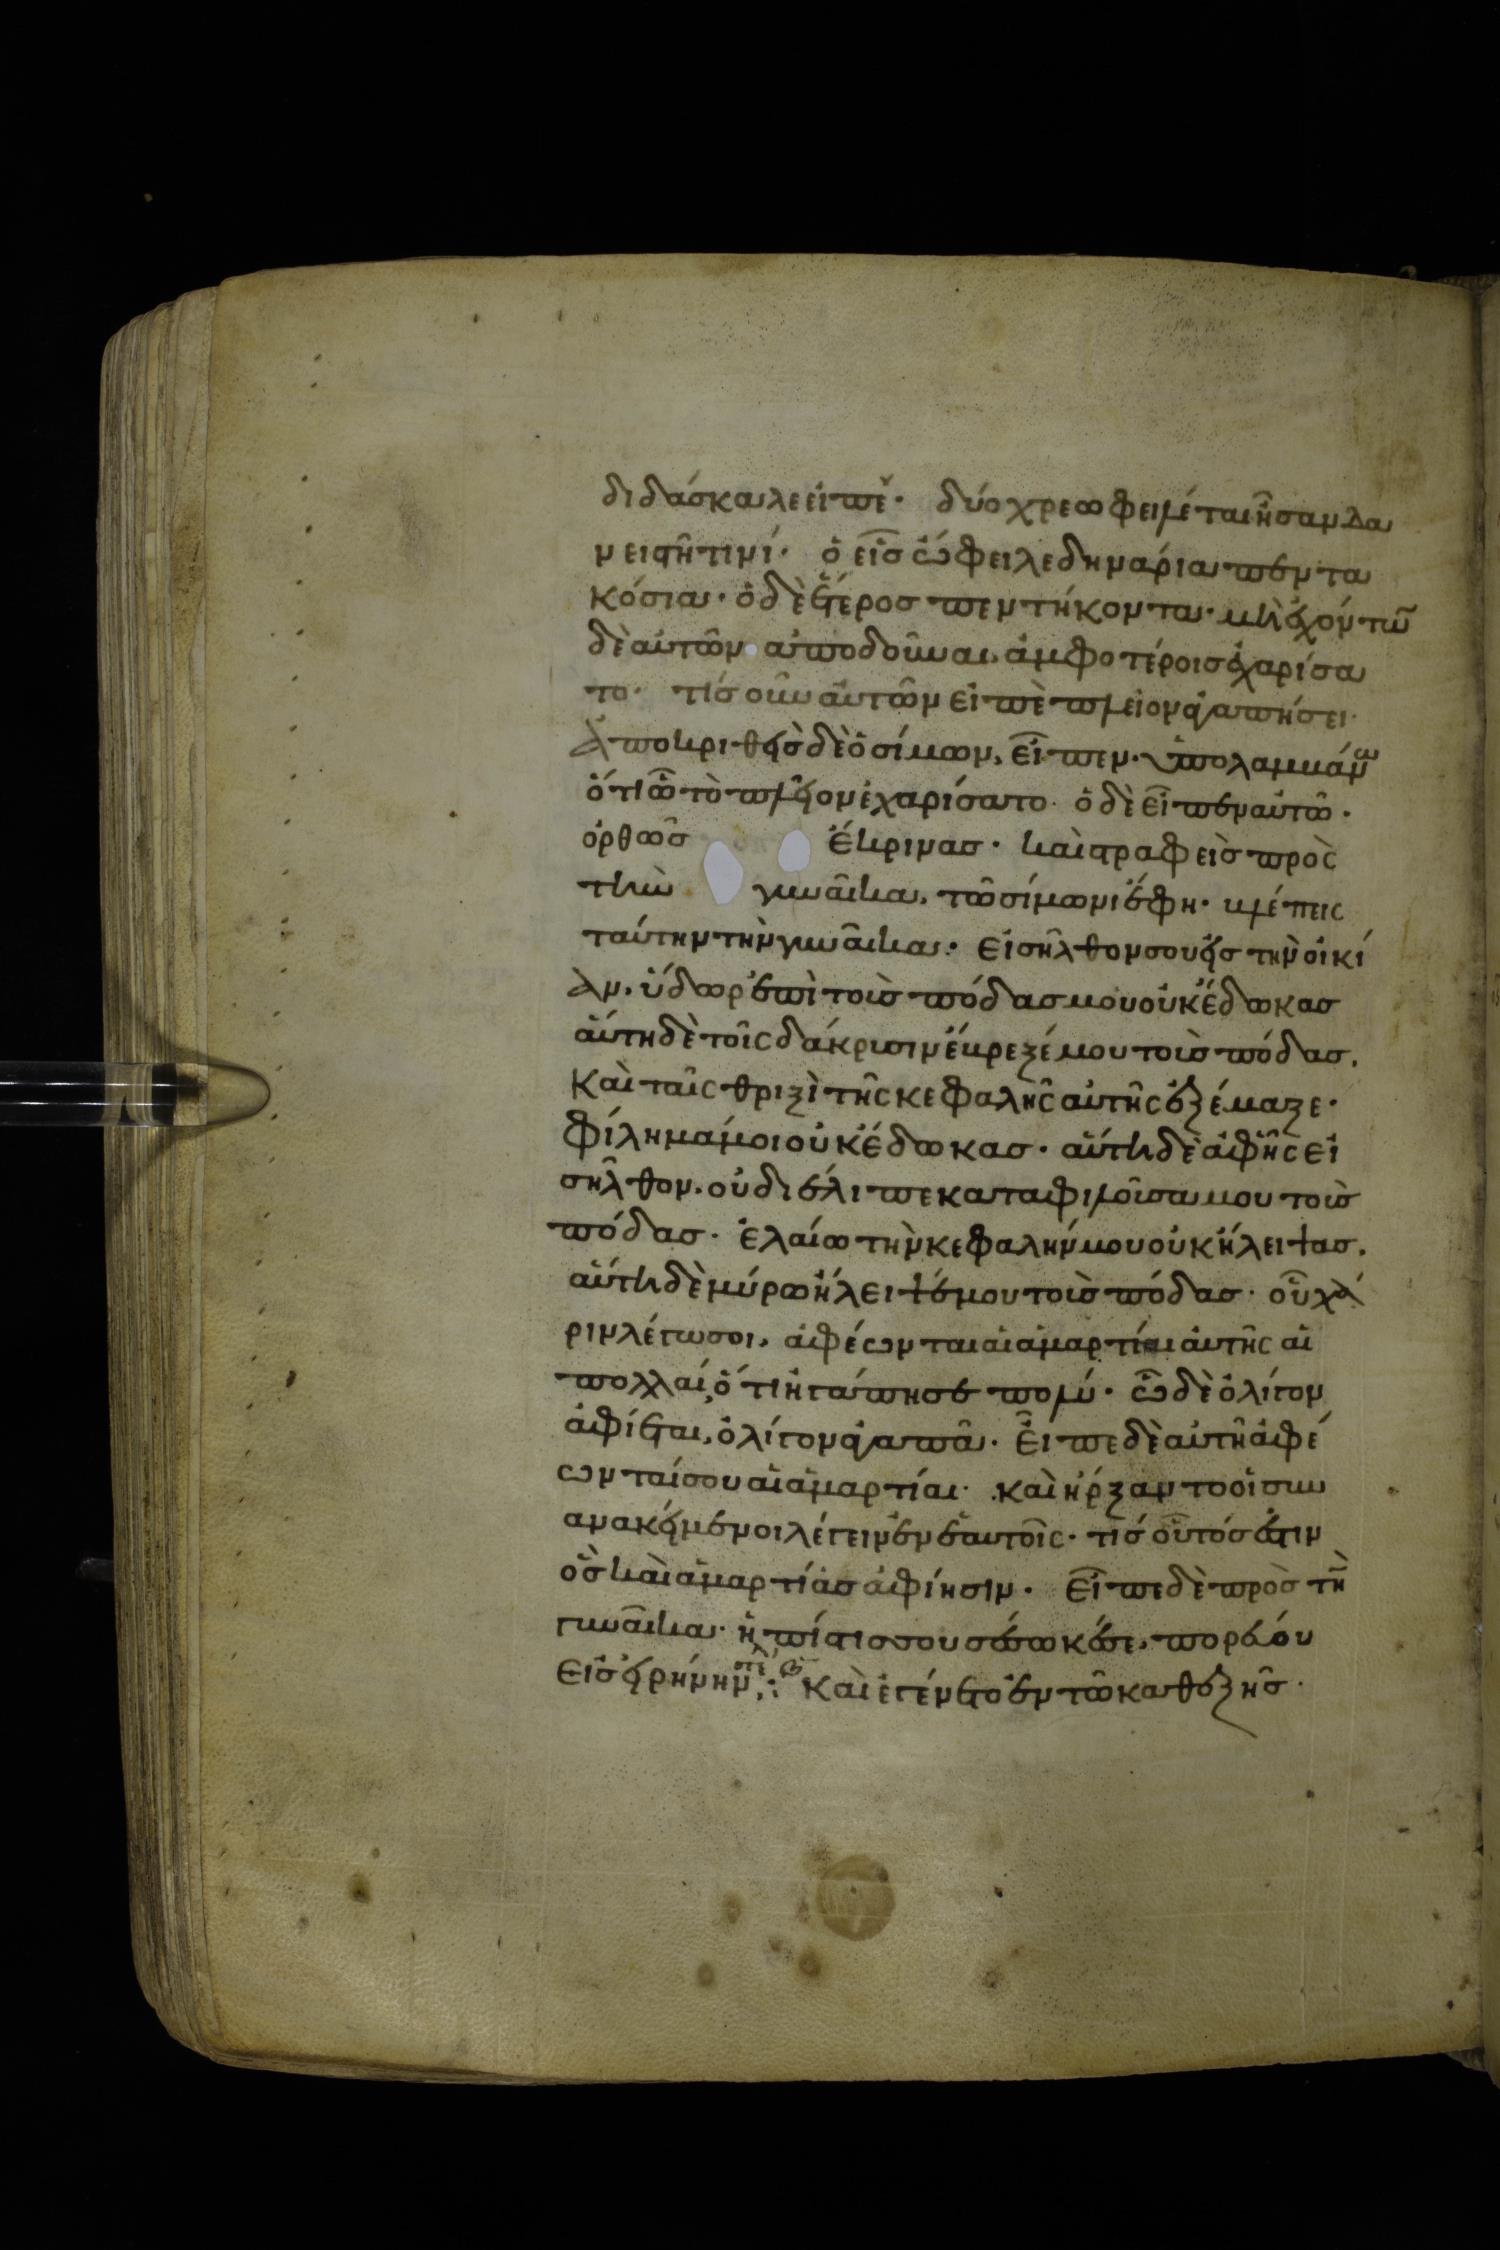 διδάσκαλε εἰπέ· δύο χρεωφειλέται ἦσαν δα
νειστῆ τινί· ὁ εἷς ὤφειλε δηνάρια πεντα
κόσια· ὁ δὲ ἕτερος πεντήκοντα· μὴ ἐχόντων
δὲ αὐτῶν ἀποδοῦναι, ἀμφοτέροις ἐχαρίσα
το· τίς οὖν αὐτῶν εἰπὲ πλεῖον ἀγαπήσει·
Ἀποκριθεὶς δὲ ὁ σίμων, εἶπεν· ὑπολαμβάνω
ὅτι ὧ τὸ πλεῖον ἐχαρίσατο· ὁ δὲ εἶπεν αὐτῶ·
ὀρθῶς ἔκρινας· καὶ στραφεὶς πρὸς
τὴν γυναῖκα, τῶ σίμωνι ἔφη· βλέπεις
ταύτην τὴν γυναῖκα· εἰσῆλθον σου εἰς τὴν οἰκί
αν, ὕδωρ ἐπὶ τοὺς πόδας μου οὐκ ἔδωκας
αὕτη δὲ τοῖς δάκρυσιν ἔβρεξέ μου τοὺς πόδας,
καὶ ταῖς θριξὶ τῆς κεφαλῆς αὐτῆς ἐξέμαξε·
φίλημά μοι οὐκ ἔδωκας· αὕτη δὲ ἀφῆς εἰ
σῆλθον, οὐ διέλιπε καταφιλοῦσα μου τοὺς
πόδας· ἐλαίω τὴν κεφαλήν μου οὐκ ἤλειψας,
αὕτη δὲ μύρω ἤλειψέ μου τοὺς πόδας· οὗ χά
ριν λέγω σοι, ἀφέωνται αἱ ἁμαρτίαι αὐτῆς αἱ
πολλαί, ὅτι ἠγάπησε πολύ· ὧ δὲ ὀλίγον
ἀφίεται, ὀλίγον ἀγαπᾶ· εἶπε δὲ αὐτῆ ἀφέ
ωνταί σου αἱ ἁμαρτίαι· καὶ ἤρξαντο οἱ συν
ανακείμενοι λέγειν ἐν ἑαυτοῖς· τίς οὗτός ἐστιν
ὃς καὶ ἁμαρτίας ἀφίησιν· εἶπε δὲ πρὸς τὴν
γυναῖκα· ἡ πίστις σου σέσωκέ σε, πορεύου
εἰς εἰρήνην: καὶ ἐγένετο ἐν τῶ καθεξῆς·